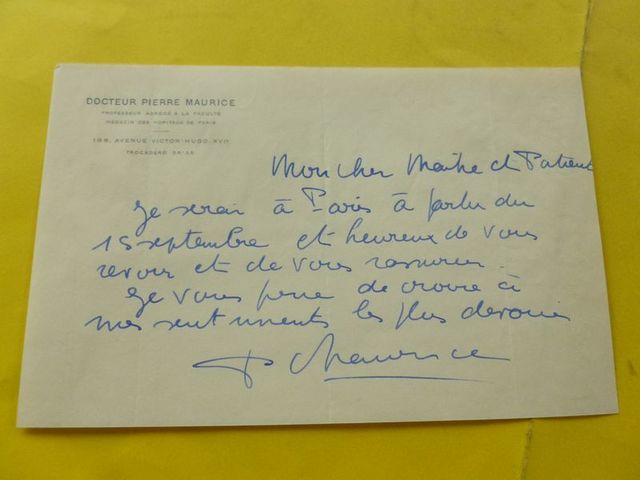 DOCTEUR PIERRE MAURICE
PROFESSEUR AGRÉGÉ A LA FACULTÉ
MÉDECIN DES HOPITAUX DE PARIS
AVENUE VICTOR-HUGO.XVI
TROCADÉRO
Mon cher Maître et Patient
Je serai à Paris à partir du
15 septembre et heureux de vous
revoir et de vous rassurer.
Je vous prie de croire à
mes sentiments les plus dévoués
P Maurice